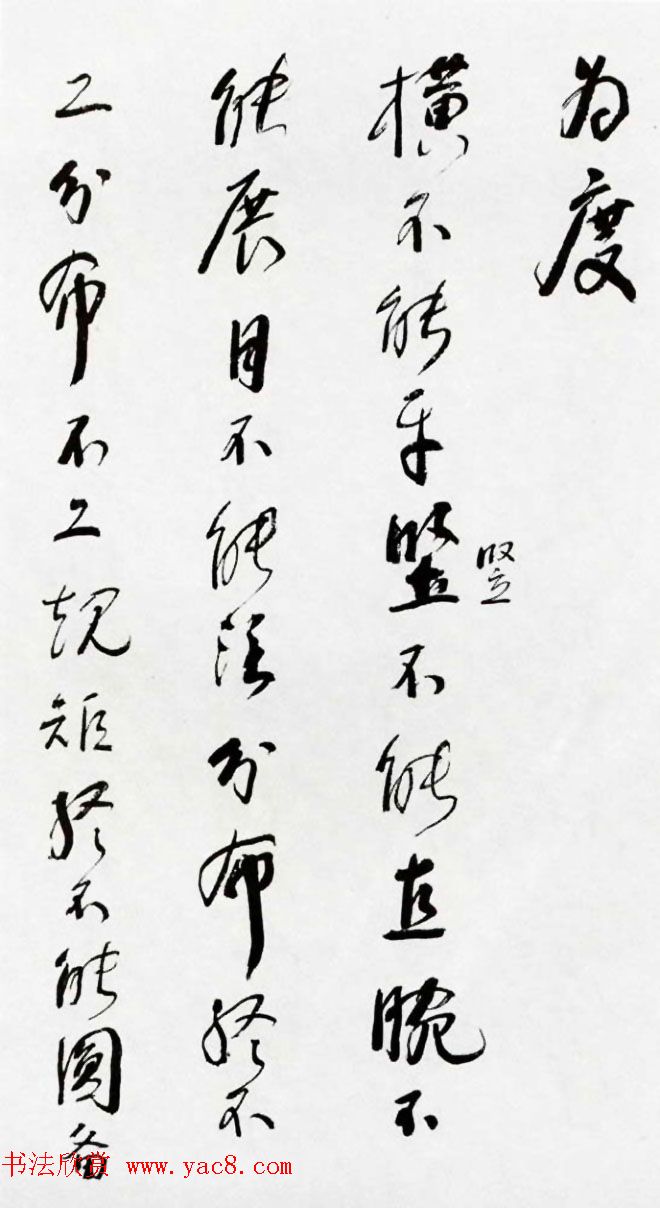 为度
横不能平竖不能直腕不
竖
能展目不能注分布终不
工分布不工规矩终不能圆备
书法欣赏 www.yac8.com